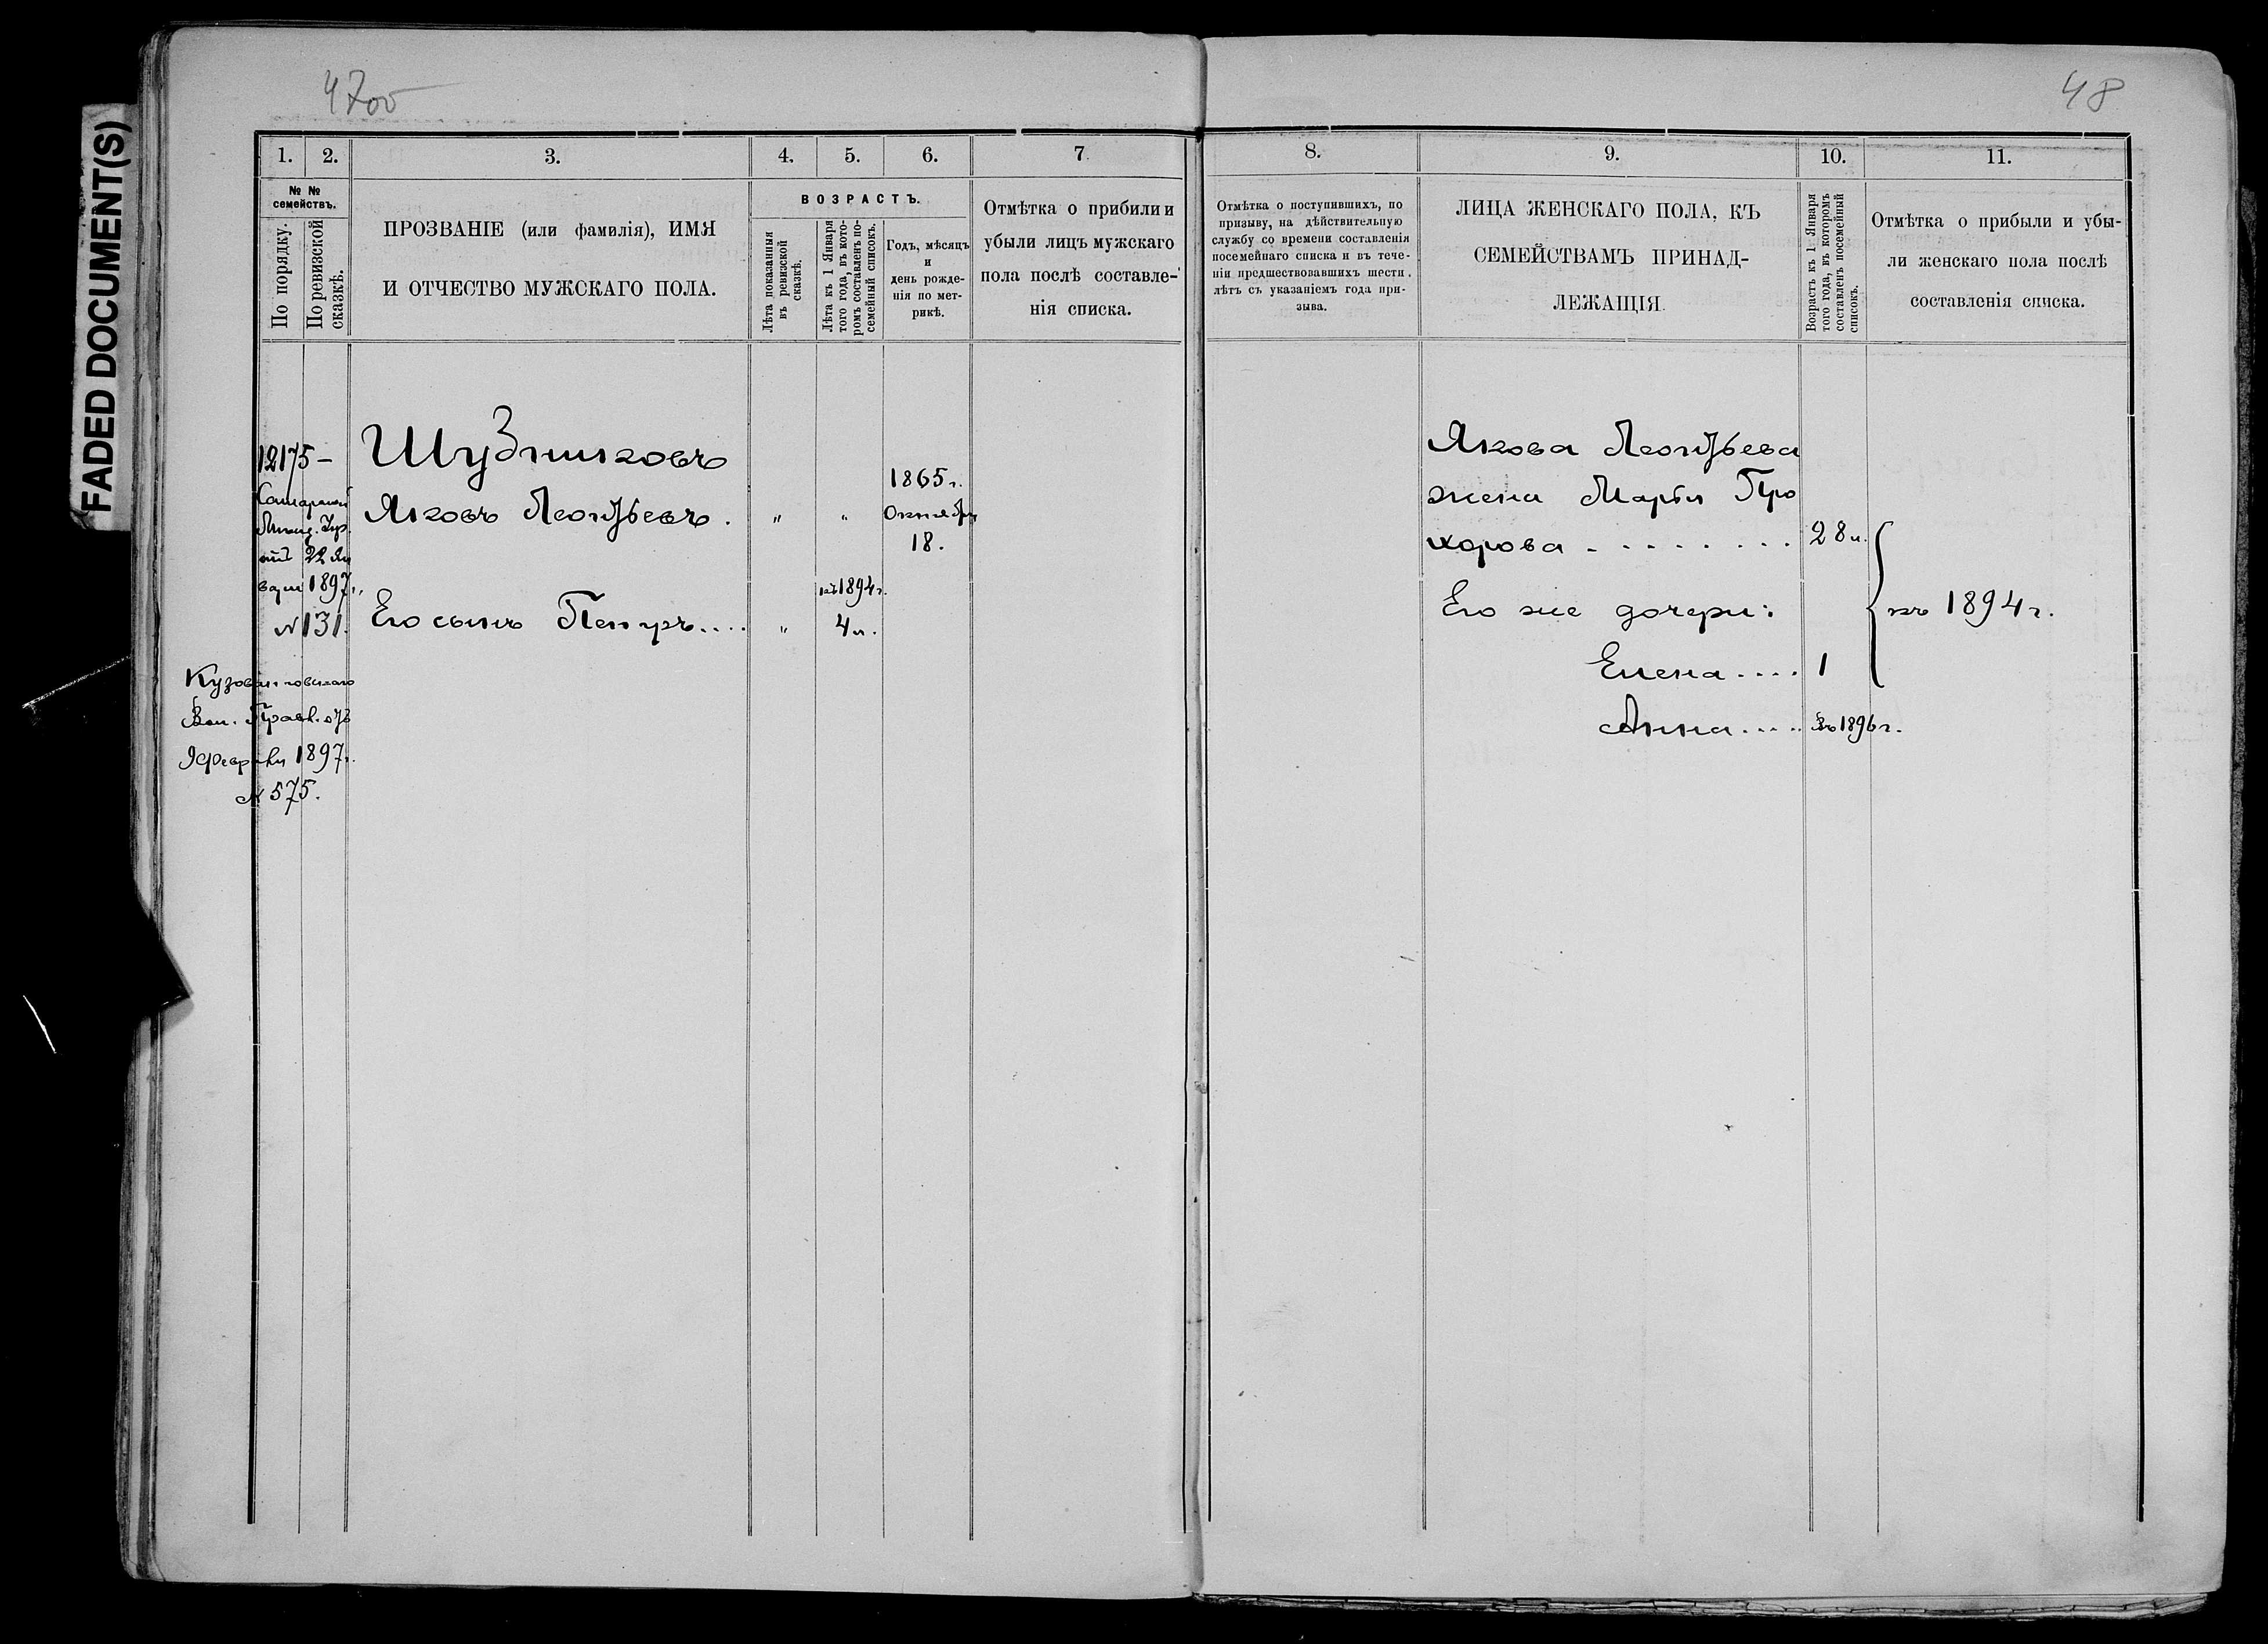 FADED DOCUMENT(S)
47об
48
1.
2.
3.
4.
5.
6.
7
8.
9.
10.
11.
№ №
семействъ.
По порядку.
По ревизской
сказкѣ.
ПРОЗВАНІЕ (или фамилія), ИМЯ
И ОТЧЕСТВО МУЖСКАГО ПОЛА.
ВОЗРАСТЪ.
Лѣта показанныя
въ ревизской
сказкѣ.
Лѣта къ 1 Января
того года, въ кото-
ромъ составленъ по-
семейный списокъ.
Годъ, мѣсяцъ
и
день рожде-
нія по мет-
рикѣ.
Отмѣтка о прибыли и
убыли лицъ мужскаго
пола послѣ составле-
нія списка.
Отмѣтка о поступившихъ, по
призыву, на дѣйствительную
службу со времени составленія
посемейнаго списка и въ тече-
ніи предшествовавшихъ шести
лѣтъ съ указаніемъ года при-
зыва.
ЛИЦА ЖЕНСКАГО ПОЛА, КЪ
СЕМЕЙСТВАМЪ ПРИНАД-
ЛЕЖАЩІЯ
Возрастъ къ 1 Января
того года, въ которомъ
составленъ посемейный
списокъ.
Отмѣтка о прибыли и убы-
ли женскаго пола послѣ
составленія списка.
12175 –
отъ 22 Ян
варя 1897 „
№ 131.
Вол. Правл. отъ
Февраля 1897 г.
№ 575.
Яковъ Леонтьевъ . „ „
1865 г.
Октября
18.
Его сынъ Петръ .... „
къ 1894 г.
4 л.
Якова Леонтьева
жена Марья Про
хорова - - - - - - - - 28 л.
Его же дочери:
Елена .... 1
Анна ..... Въ 1896 г.
къ 1894 г.